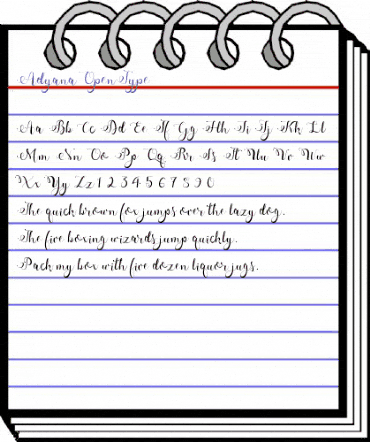 Adyana OpenType
Aa Bb Cc Dd Ee Ff Gg Hh Ii Jj Kk Ll
Mm Nn Oo Pp Qq Rr Ss Tt Uu Vv Ww
Xx Yy Zz 1 2 3 4 5 6 7 8 9 0
The quick brown fox jumps over the lazy dog.
The five boxing wizards jump quickly.
Pack my box with five dozen liquor jugs.